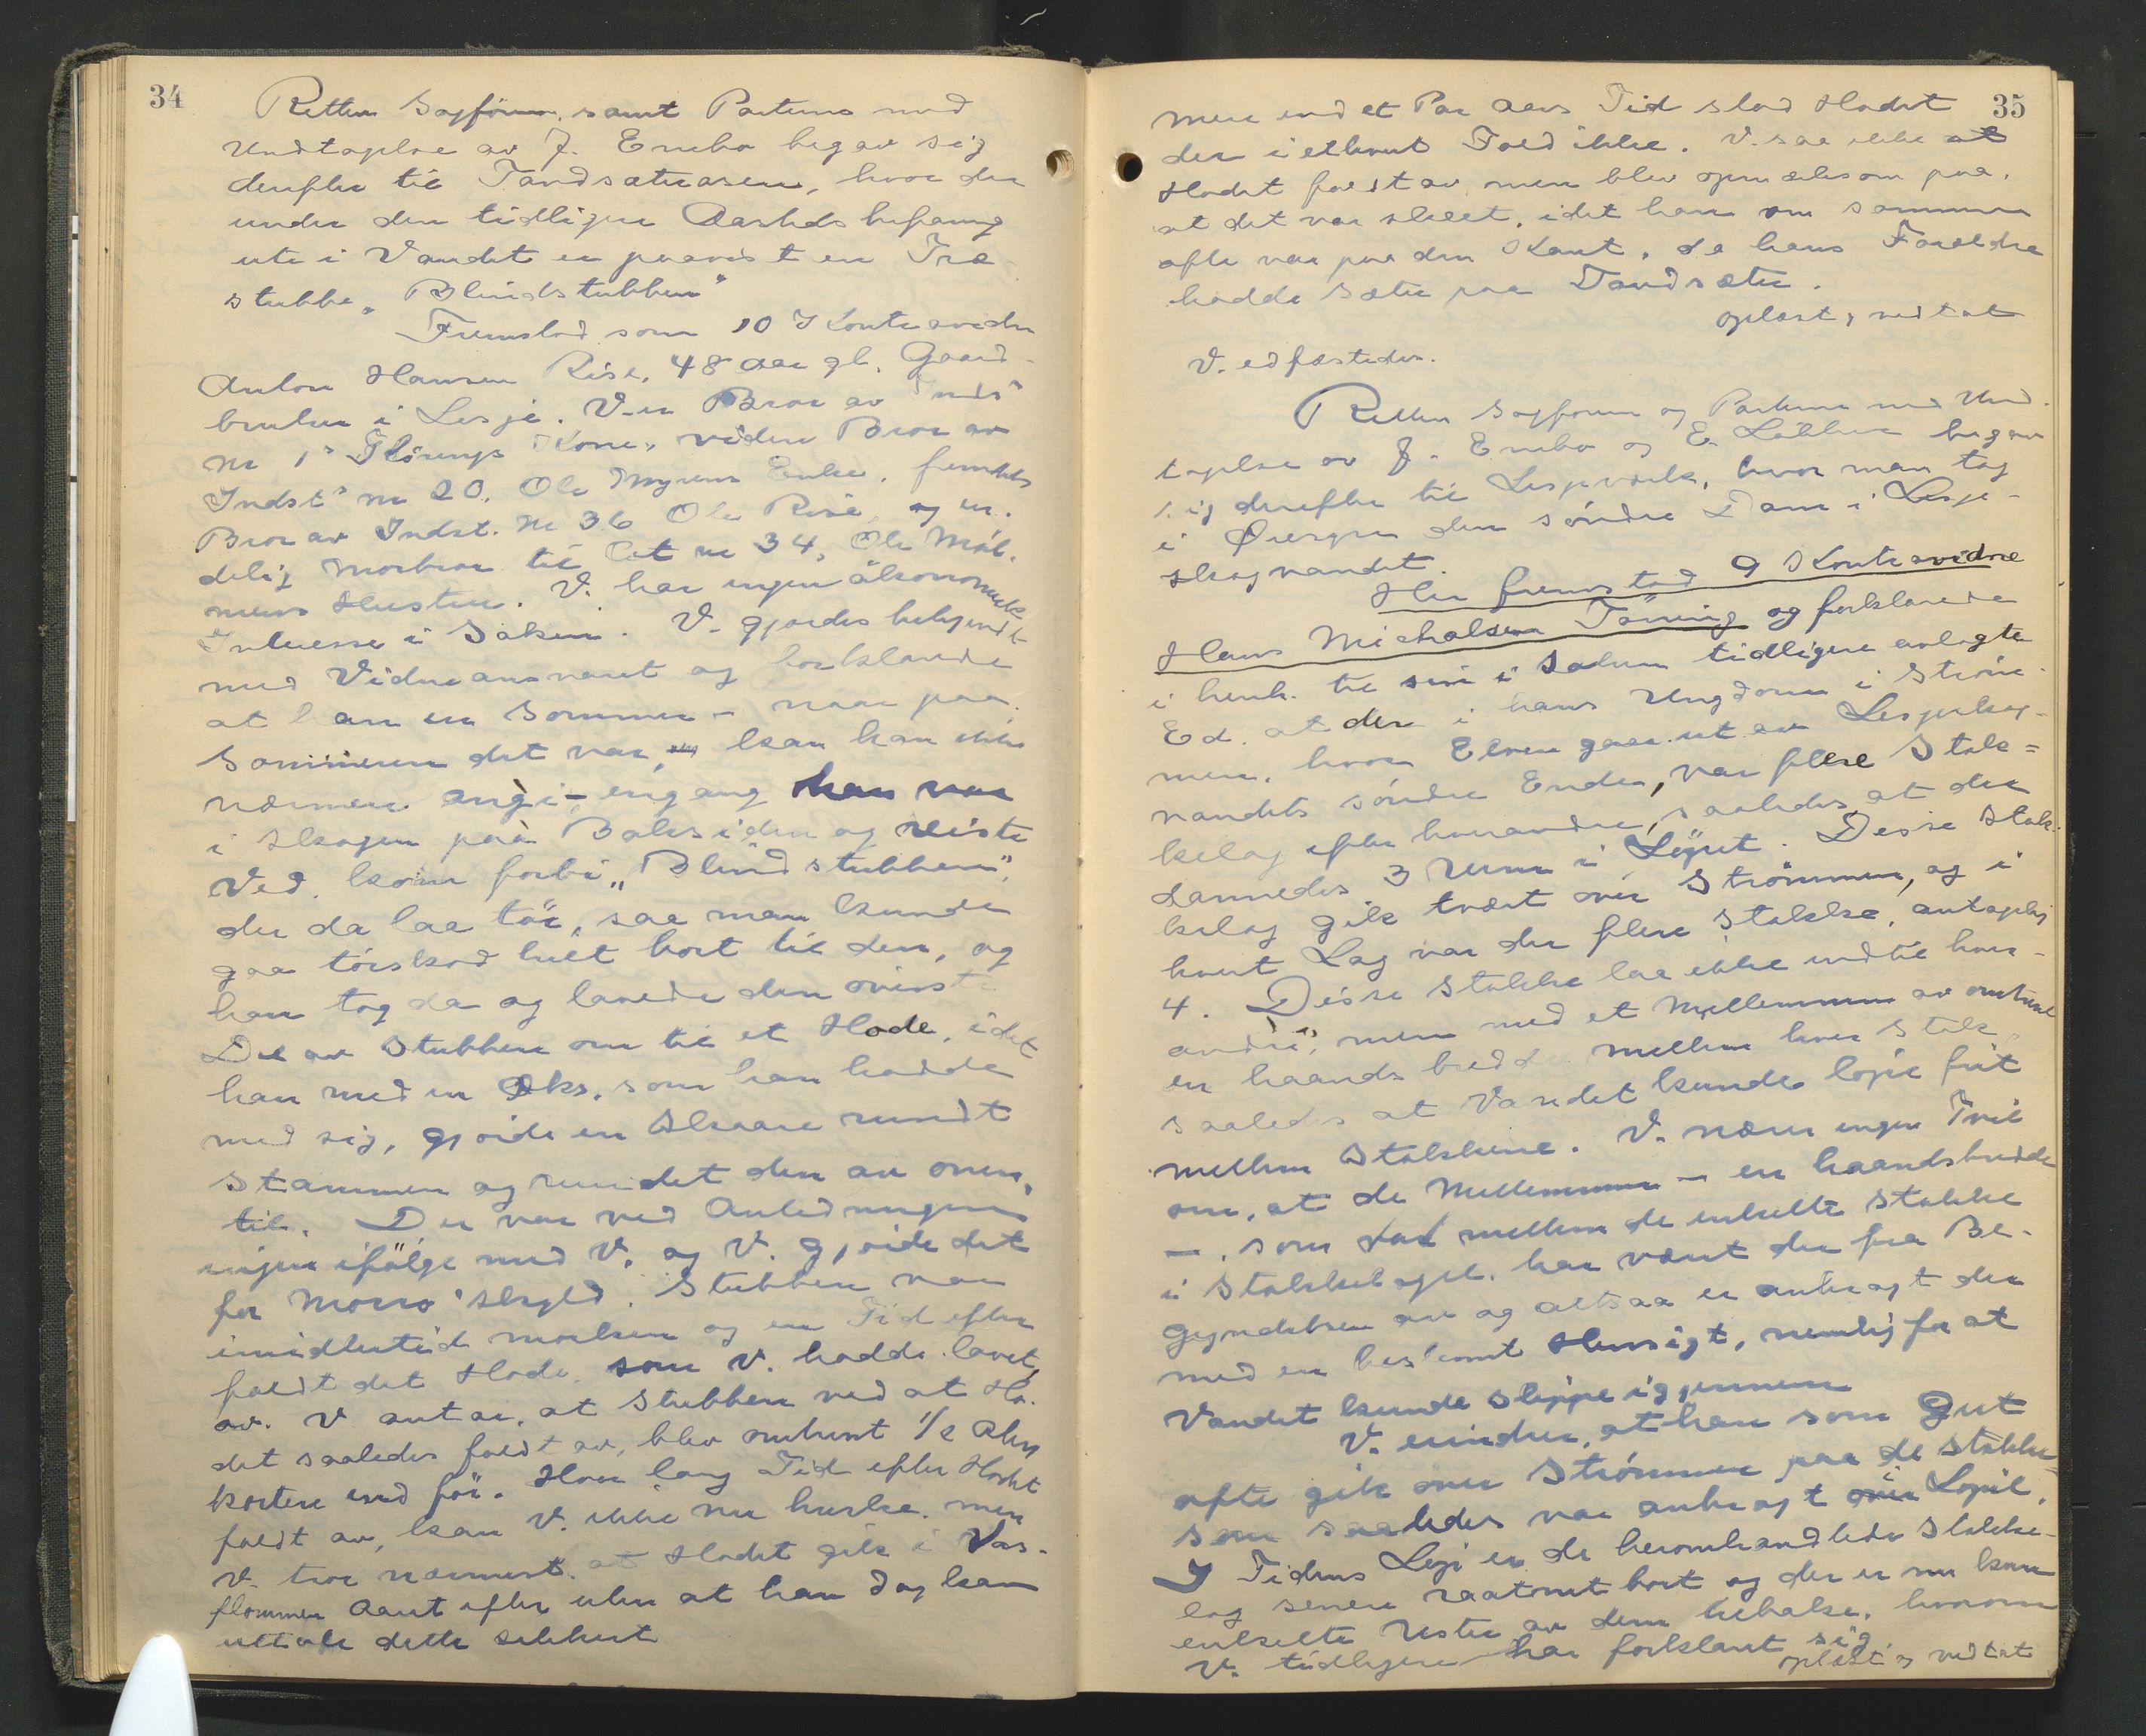 34
Retten Sagförerne samt Parterne med
Undtagelse av J. Enebo begav sig
derefter til Tandsæteråsen, hvor der
under den tidligere Aastedsbefaring
ute i Vandet er paavist en Træ
stubbe "Blindstubben"
Fremstod som 10 Kontravidne
Anton Hansen Rise, 48 aar gl. Gaard-
bruker i Lesje. V. er Bror av Indst
nr 1 Kone, videre Bror av
Indst nr 20. Ole Myrens Enke,
Bror av Indst. nr 36 Ole Rise og en-
delig Morbror til Cit nr 34, Ole Möl-
mens Hustru. V. har ingen ökonomisk
Interesse i Saken. V. gjordes bekjendt
med Vidneansvaret og forklarede
at han en Sommer - naar paa
Sommeren det var, kan han ikke
nærmere angi - engang han var
i Skogen paa Baksiden og reiste
Ved, kom forbi "Blindstubben",
der da laa tör, saa man kunde
gaa törskod helt bort til den, og
han tog da og lavede den överste
Del av Stubben om til et Hode, idet
han med en Öks, som han hadde
med sig, gjorde en Skaare rundt
Stammen og rundet den av oven-
til. Der var ved Anledningen
ingen ifölge med V. og V. gjorde det
for Morro skyld. Stubben var
imidlertid morken og en Tid efter
faldt det Hode, som V. hadde lavet,
av. V. antar, at Stubben ved at Ho-
det saaledes faldt av, blev omtrent 1/2 Alen
kortere end för. Hvor lang Tid efter Hodet
faldt av, kan V. ikke nu huske, men
V. tror nærmest at Hodet gik i Vaar-
flommen Aaret efter uten at han dog kan
uttale dette sikkert
35
mere end et Par Aars Tid stod Hodet
der i ethvert Fald ikke. V. saa ikke at
Hodet faldt av, men blev opmerksom paa,
at det var skeet, idet han om Sommeren
ofte var paa den Kant, da hans Forældre
hadde Sæter paa Tandsæter.
oplæst, vedtat
V. edfæstedes.
Retten Sagförerne og Parterne med Und-
tagelse av J. Enebo og E. Løkken begav
sig derefter til Lesjeverk, hvor man tog
i Øiesyn den söndre Dam i Lesje-
skogvandet.
Her fremstod 9 Kontravidne
Hans Michalsen Töning og forklarede
i henh. til sin i Saken tidligere avlagte
Ed. at der i hans Ungdom i Ström-
men, hvor Elven gaar ut av Lesjeskog-
vandets söndre Ende, var flere Stok-
kelag efter hverandre, saaledes at der
dannedes 3 Rum i Löpet. Disse Stok-
kelag gik tvært over Strömmen, og i
hvert Lag var der flere Stokke, antagelig
4. Disse Stokke laa ikke indtil hver-
andre, men med et Mellemrum av omtrent
en haandsbredde mellem hver Stok,
saaledes at Vandet kunde löpe frit
mellem Stokkene. V. nærer ingen Tvil
om, at de Mellemrum - en haandsbredde
-, som lod mellem de enkelte Stokke
i Stokkelaget, har været der fra Be-
gyndelsen av og altsaa er anbragt der
med en bestemt Hensigt, nemlig for at
Vandet kunde slippe igjennem
V. erindrer, at han som Gut
ofte gik over Strömmen paa de Stokke
som saaledes var anbragt i Löpet.
I Tidens Löp er de heromhandlede Stokke-
lag senere raatnet bort og der er nu kun
enkelte Rester av dem tilbake, hvorom
V. tidligere har forklart sig.
oplæst og vedtat